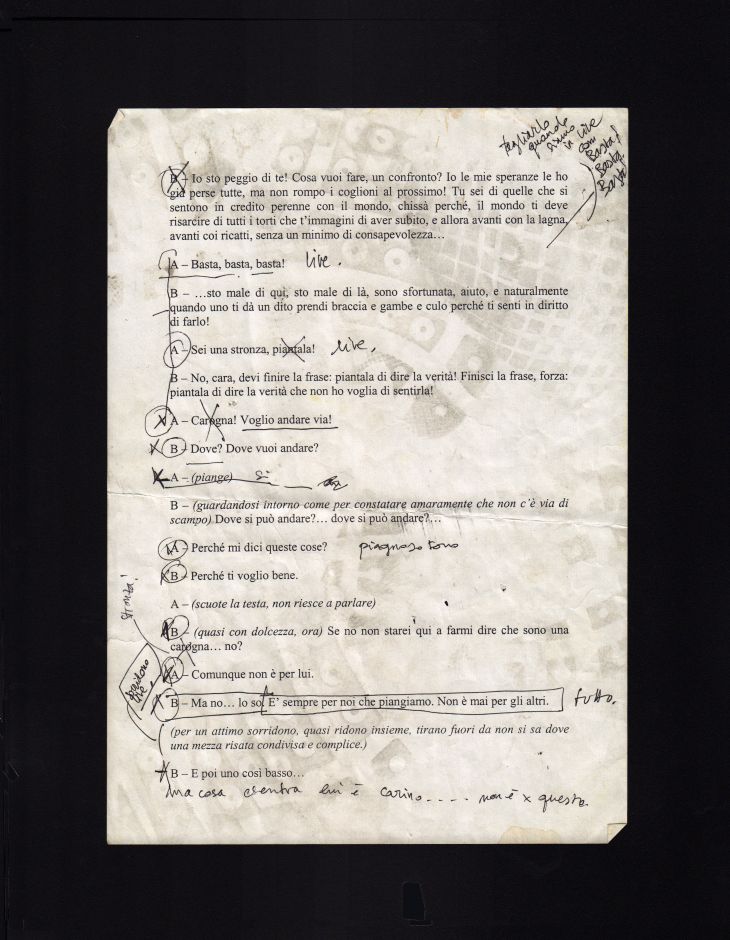 tagliarlo
quando
siamo
in live
con
Basta!
Basta
Basta
B – Io sto peggio di te! Cosa vuoi fare, un confronto? Io le mie speranze le ho
già perse tutte, ma non rompo i coglioni al prossimo! Tu sei di quelle che si
sentono in credito perenne con il mondo, chissà perché, il mondo ti deve
risarcire di tutti i torti che t’immagini di aver subito, e allora avanti con la lagna,
avanti coi ricatti, senza un minimo di consapevolezza…
A – Basta, basta, basta! live.
B – …sto male di qui, sto male di là, sono sfortunata, aiuto, e naturalmente
quando uno ti dà un dito prendi braccia e gambe e culo perché ti senti in diritto
di farlo!
A – Sei una stronza, piantala! live.
B – No, cara, devi finire la frase: piantala di dire la verità! Finisci la frase, forza:
piantala di dire la verità che non ho voglia di sentirla!
A – Carogna! Voglio andare via!
B – Dove? Dove vuoi andare?
A – (piange) Si
B – (guardandosi intorno come per constatare amaramente che non c’è via di
scampo) Dove si può andare?… dove si può andare?…
A – Perché mi dici queste cose? piagnoso tono
B – Perché ti voglio bene.
A – (scuote la testa, non riesce a parlare)
stronza!
B – (quasi con dolcezza, ora) Se no non starei qui a farmi dire che sono una
carogna… no?
A – Comunque non è per lui.
live
B – Ma no… lo so. E’ sempre per noi che piangiamo. Non è mai per gli altri. tutto.
(per un attimo sorridono, quasi ridono insieme, tirano fuori da non si sa dove
una mezza risata condivisa e complice.)
B – E poi uno così basso…
Ma cosa c'entra lui è carino..... non è x questo.